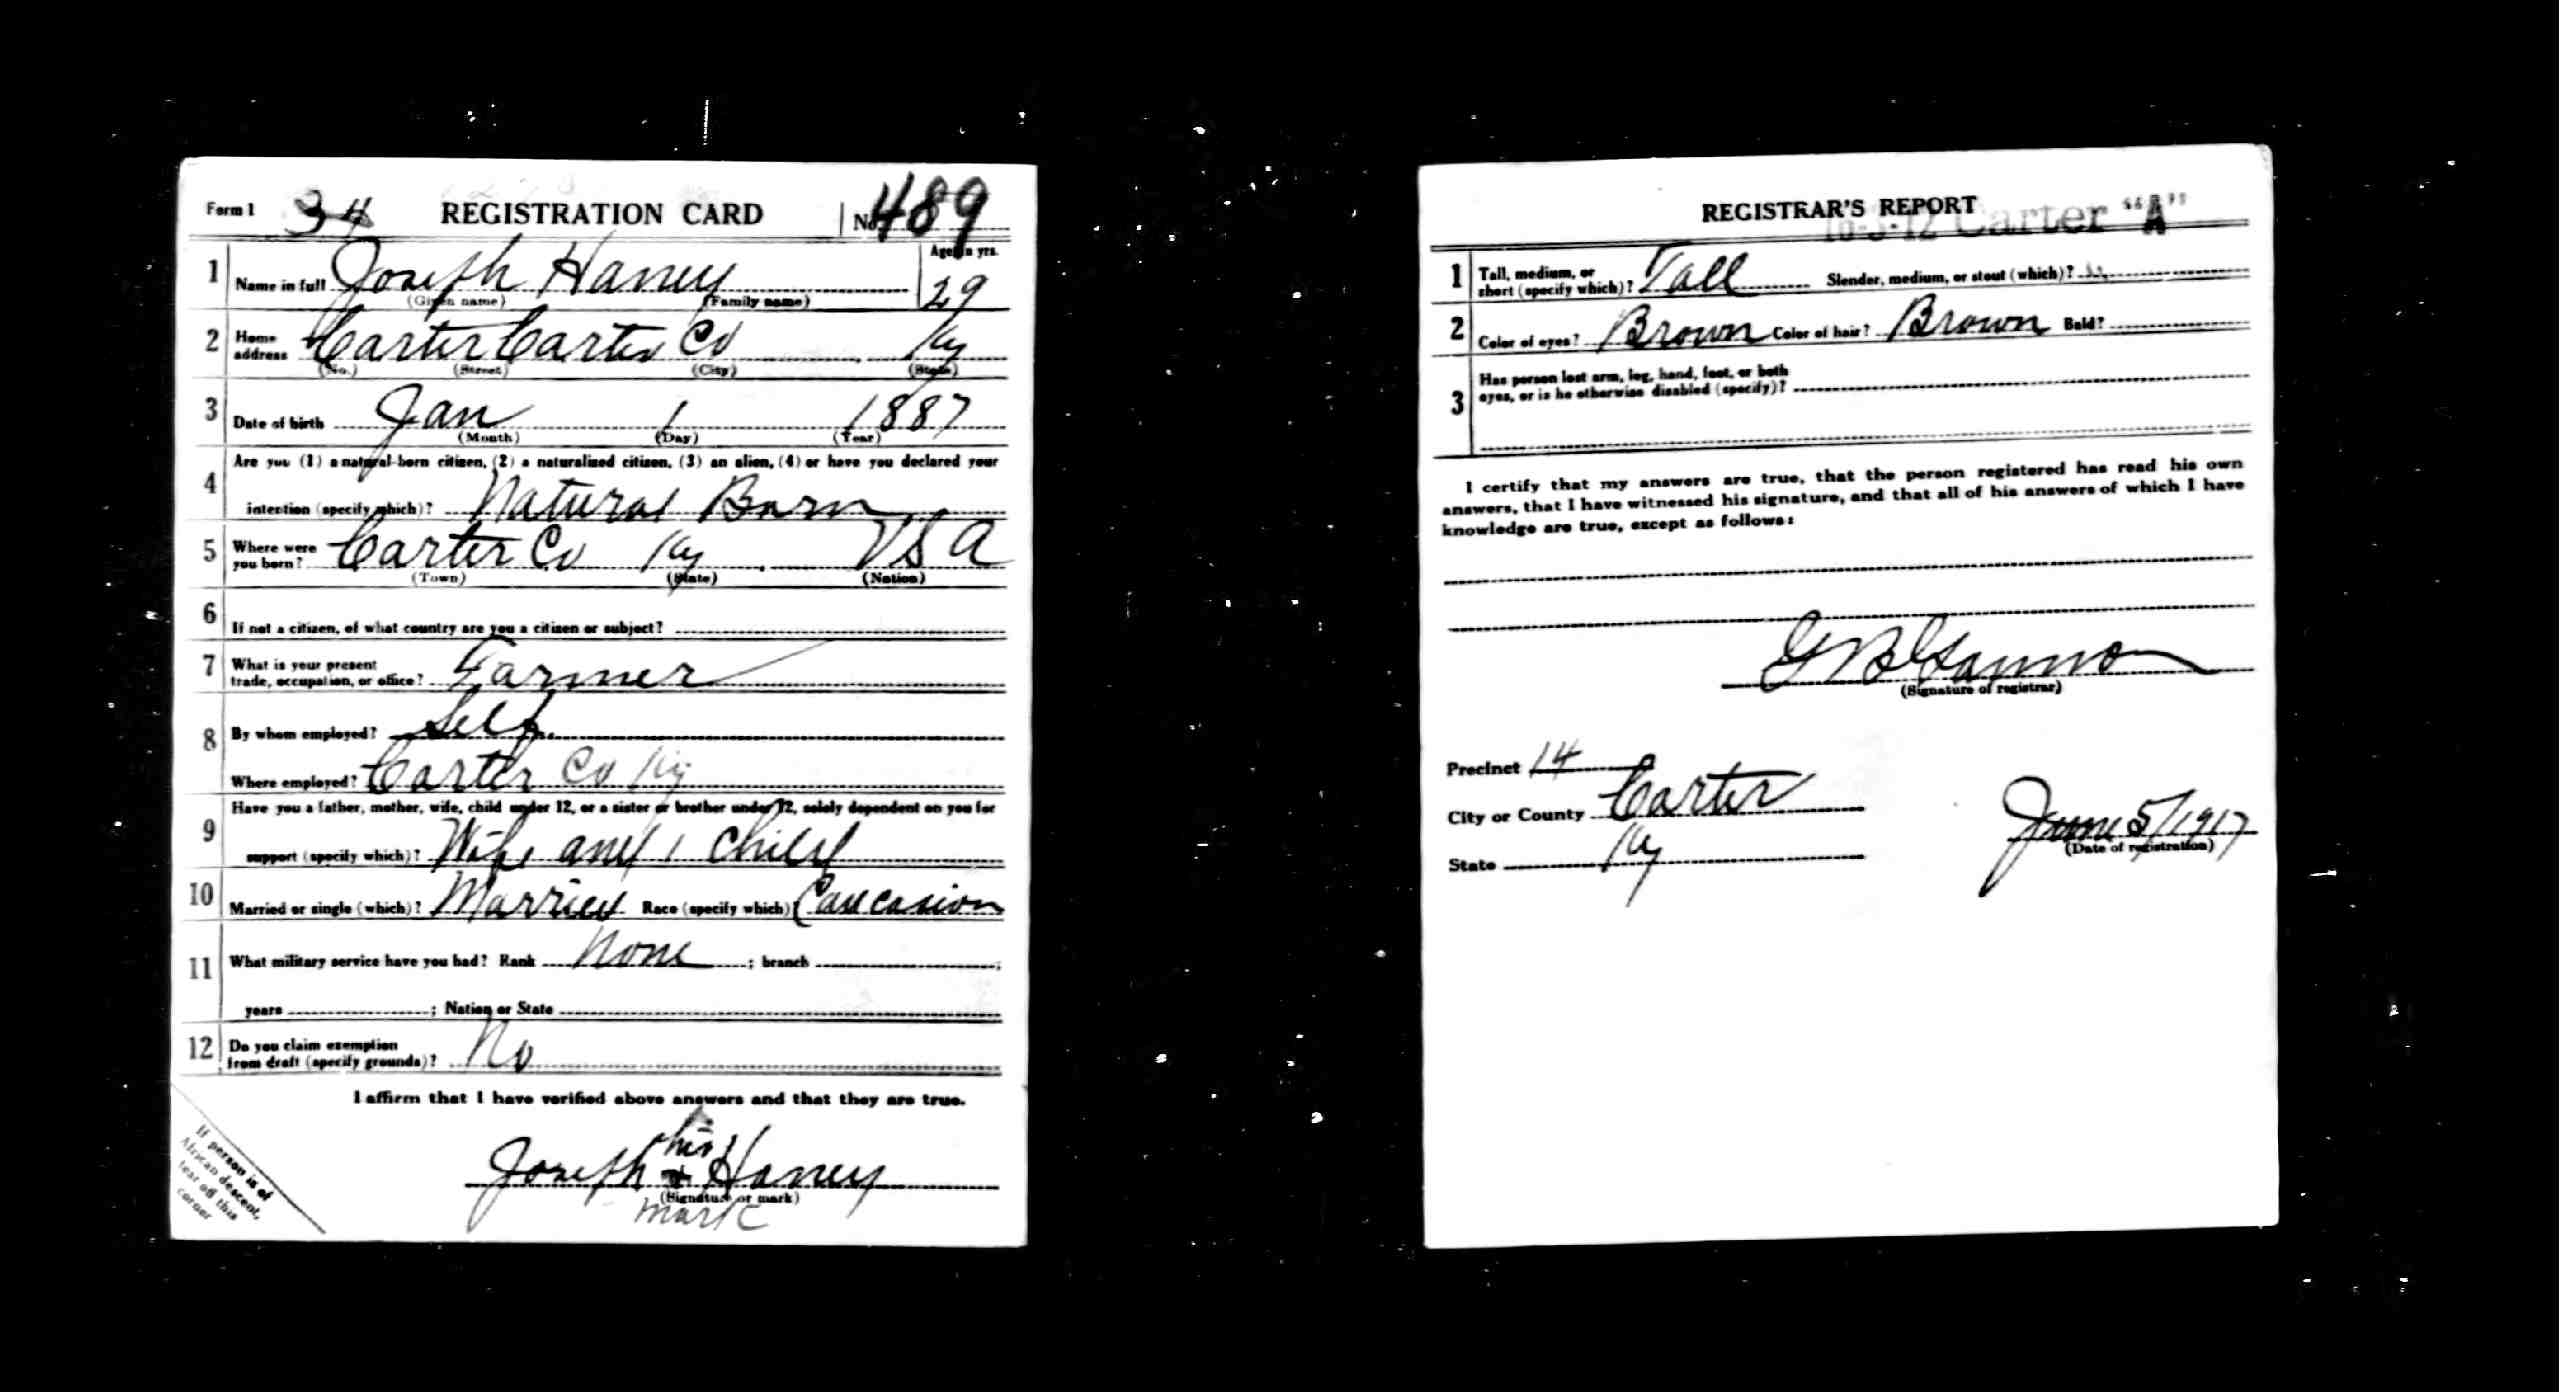 Form 1 34 REGISTRATION CARD No. 489
1 Name in full Joseph Haney Age in yrs. 29
(Given name) (Family name)
2 Home address Carter Carter Co Ky
(No.) (Street) (City) (State)
3 Date of birth Jan 1 1887
(Month) (Day) (Year)
4 Are you (1) a natural-born citizen, (2) a naturalized citizen, (3) an alien, (4) or have you declared your
intention (specify which)? Natural Born
5 Where were you born? Carter Co Ky USA
(Town) (State) (Nation)
6 If not a citizen, of what country are you a citizen or subject?
7 What is your present
trade, occupation, or office? Farmer
8 By whom employed? Self.
Where employed? Carter Co Ky
9 Have you a father, mother, wife, child under 12, or a sister or brother under 12, solely dependent on you for
support (specify which)? Wife and 1 Child
10 Married or single (which)? Married Race (specify which)? Caucasion
11 What military service have you had? Rank None ; branch ;
years ; Nation or State
12 Do you claim exemption
from draft (specify grounds)? No
I affirm that I have verified above answers and that they are true.
his
Joseph + Haney
(Signature or mark)
mark
If person is of
African descent,
tear off this
corner
REGISTRAR'S REPORT
16-3-12 Carter "A"
1 Tall, medium, or
short (specify which)? Tall Slender, medium, or stout (which)?
2 Color of eyes? Brown Color of hair? Brown Bald?
3 Has person lost arm, leg, hand, foot, or both
eyes, or is he otherwise disabled (specify)?
I certify that my answers are true, that the person registered has read his own
answers, that I have witnessed his signature, and that all of his answers of which I have
knowledge are true, except as follows:
(Signature of registrar)
Precinct 14
City or County Carter
State Ky
June 5/1917
(Date of registration)